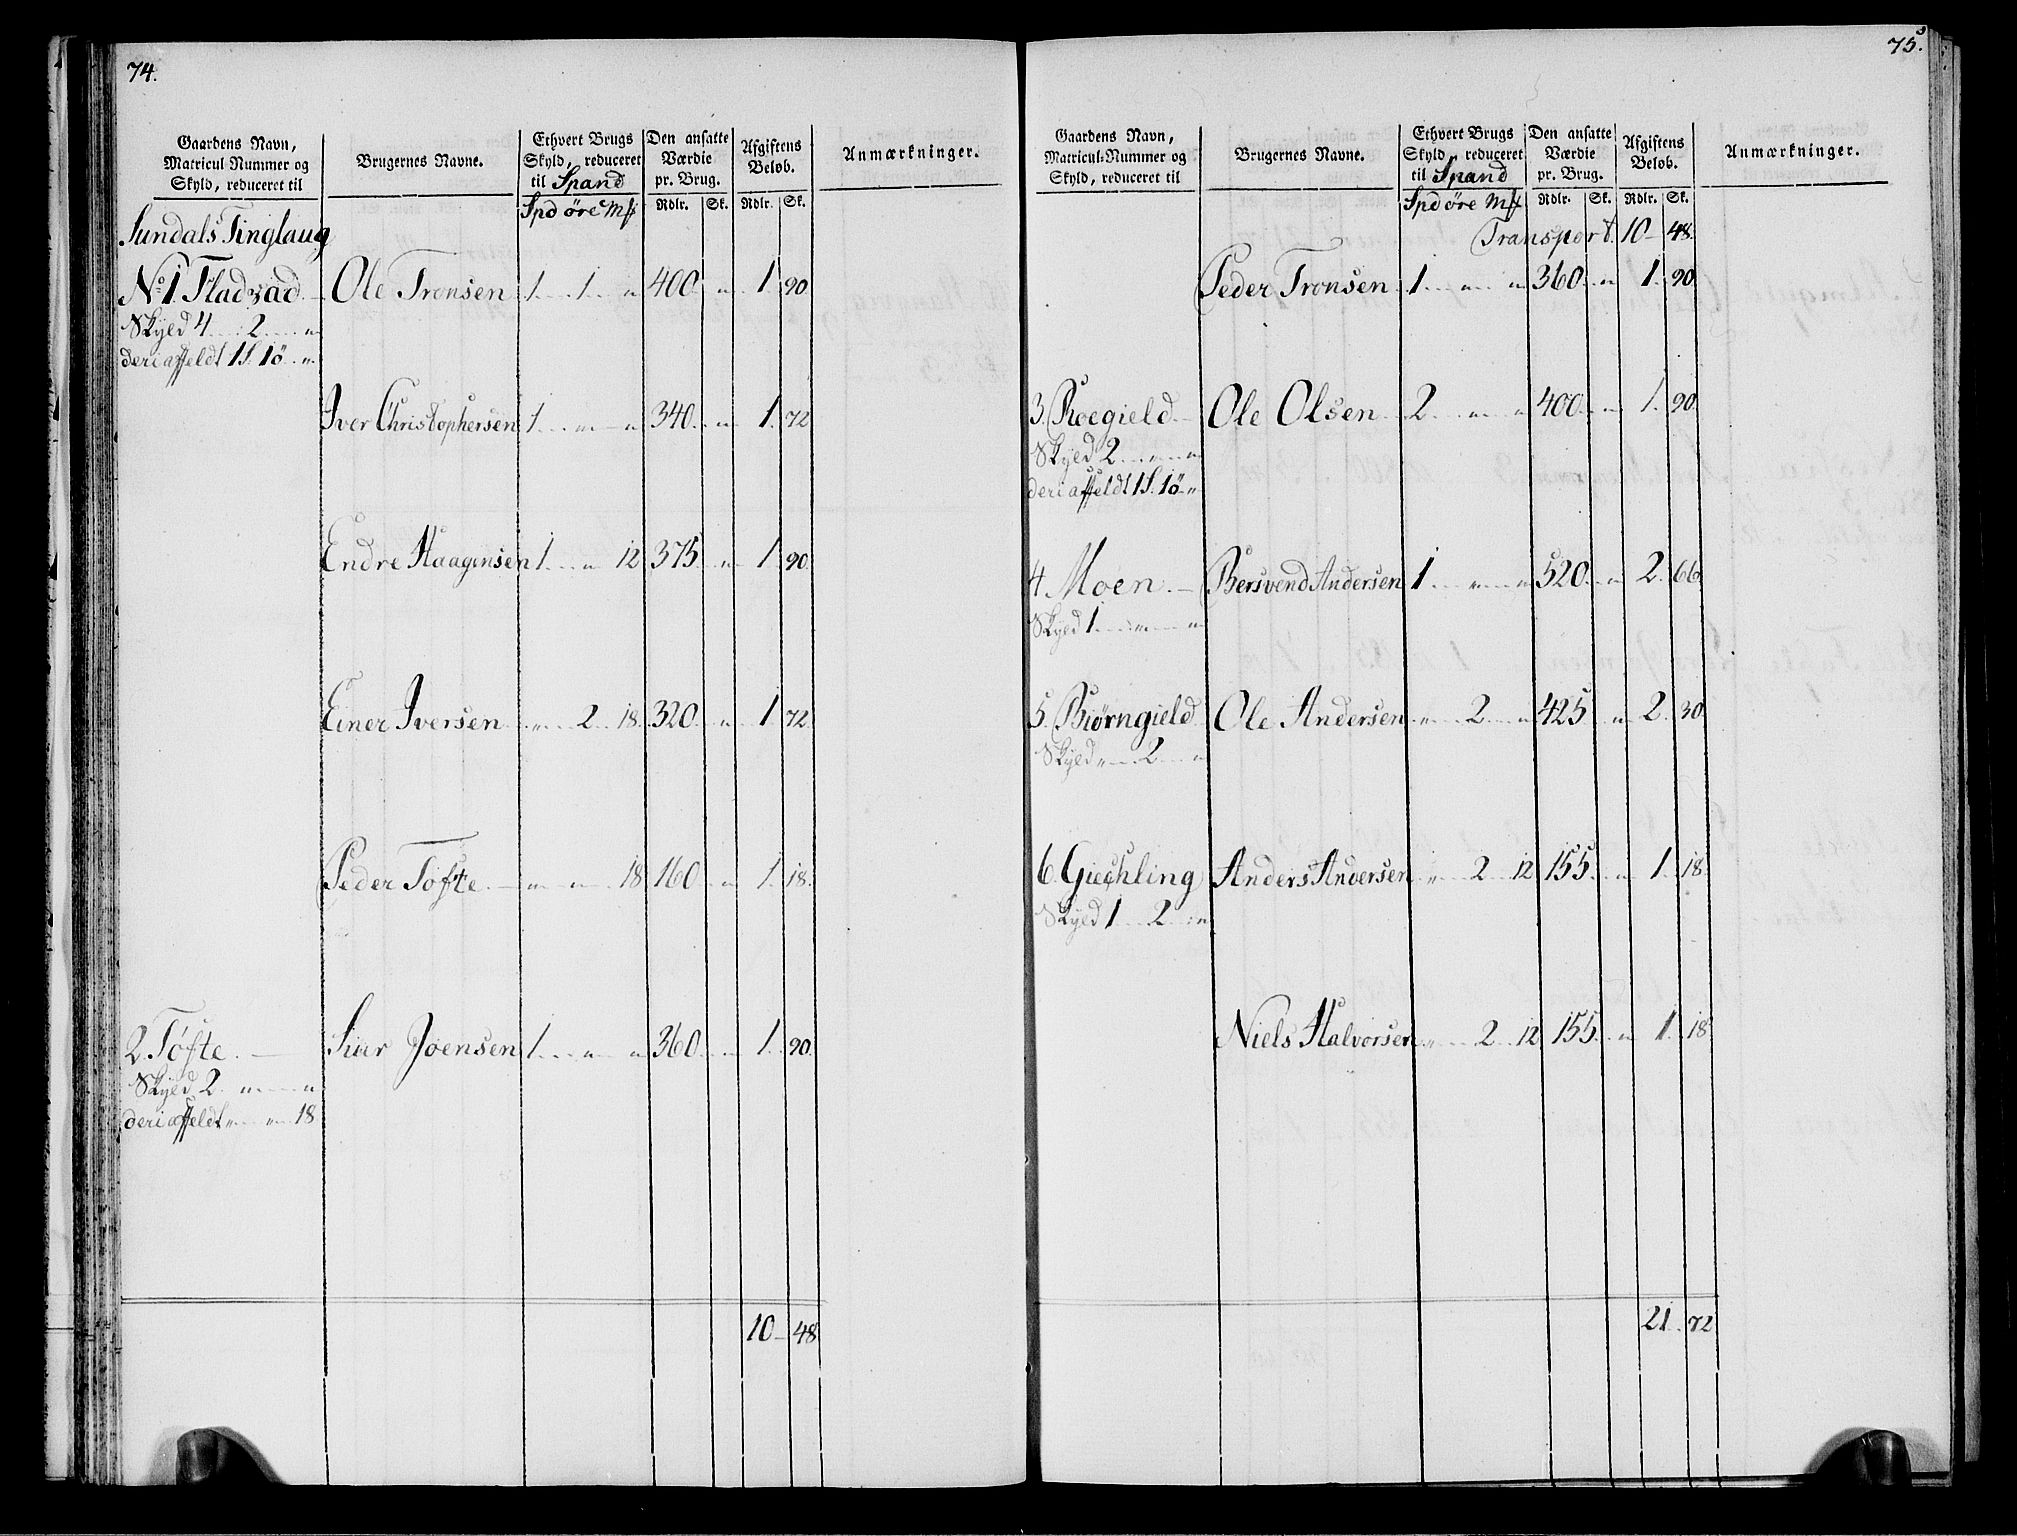 74.
Gaardens Navn, Matricul-Nummer og Skyld, reduceret til
Brugernes Navne.
Ethvert Brugs Skyld, reduceret til Spand
Den ansatte Værdie pr. Brug.
Afgiftens Beløb.
Anmærkninger.
Spd øre Mk Rdlr. Sk. Rdlr. Sk.
Sundals Tinglaug
No 1. Fladvad. Ole Tronsen 1 1 " 400 " 1 90
Skyld 4 2 "
deri affeldt 1 S. 1 ö "
Iver Christophersen 1 " " 340 " 1 72
Endre Haagensen 1 " 12 375 " 1 90
Einer Iversen " 2 18 320 " 1 72
Peder Tofte " " 18 160 " 1 18
2. Tøfte. Siur Joensen 1 " " 360 " 1 90
Skyld 2 " "
deri affeldt " " 18
10 48
75.
Gaardens Navn, Matricul-Nummer og Skyld, reduceret til
Brugernes Navne.
Ethvert Brugs Skyld, reduceret til Spand
Den ansatte Værdie pr. Brug.
Afgiftens Beløb.
Anmærkninger.
Spd øre Mk Rdlr. Sk. Rdlr. Sk.
Transport. 10 48.
Peder Tronsen 1 " " 360 " 1 90
3. Roegield Ole Olsen 2 " " 400 " 1 90
Skyld 2 " "
deri affeldt 1 S. 1 ö "
4 Moen. Bersvend Andersen 1 " " 520 " 2 66
Skyld 1 " "
5. Biørngield Ole Andersen " 2 " 425 " 2 30
Skyld " 2 "
6. Giechling Anders Andersen " 2 12 155 " 1 18
Skyld 1 2 "
Niels Halvorsen " 2 12 155 " 1 18
21 72